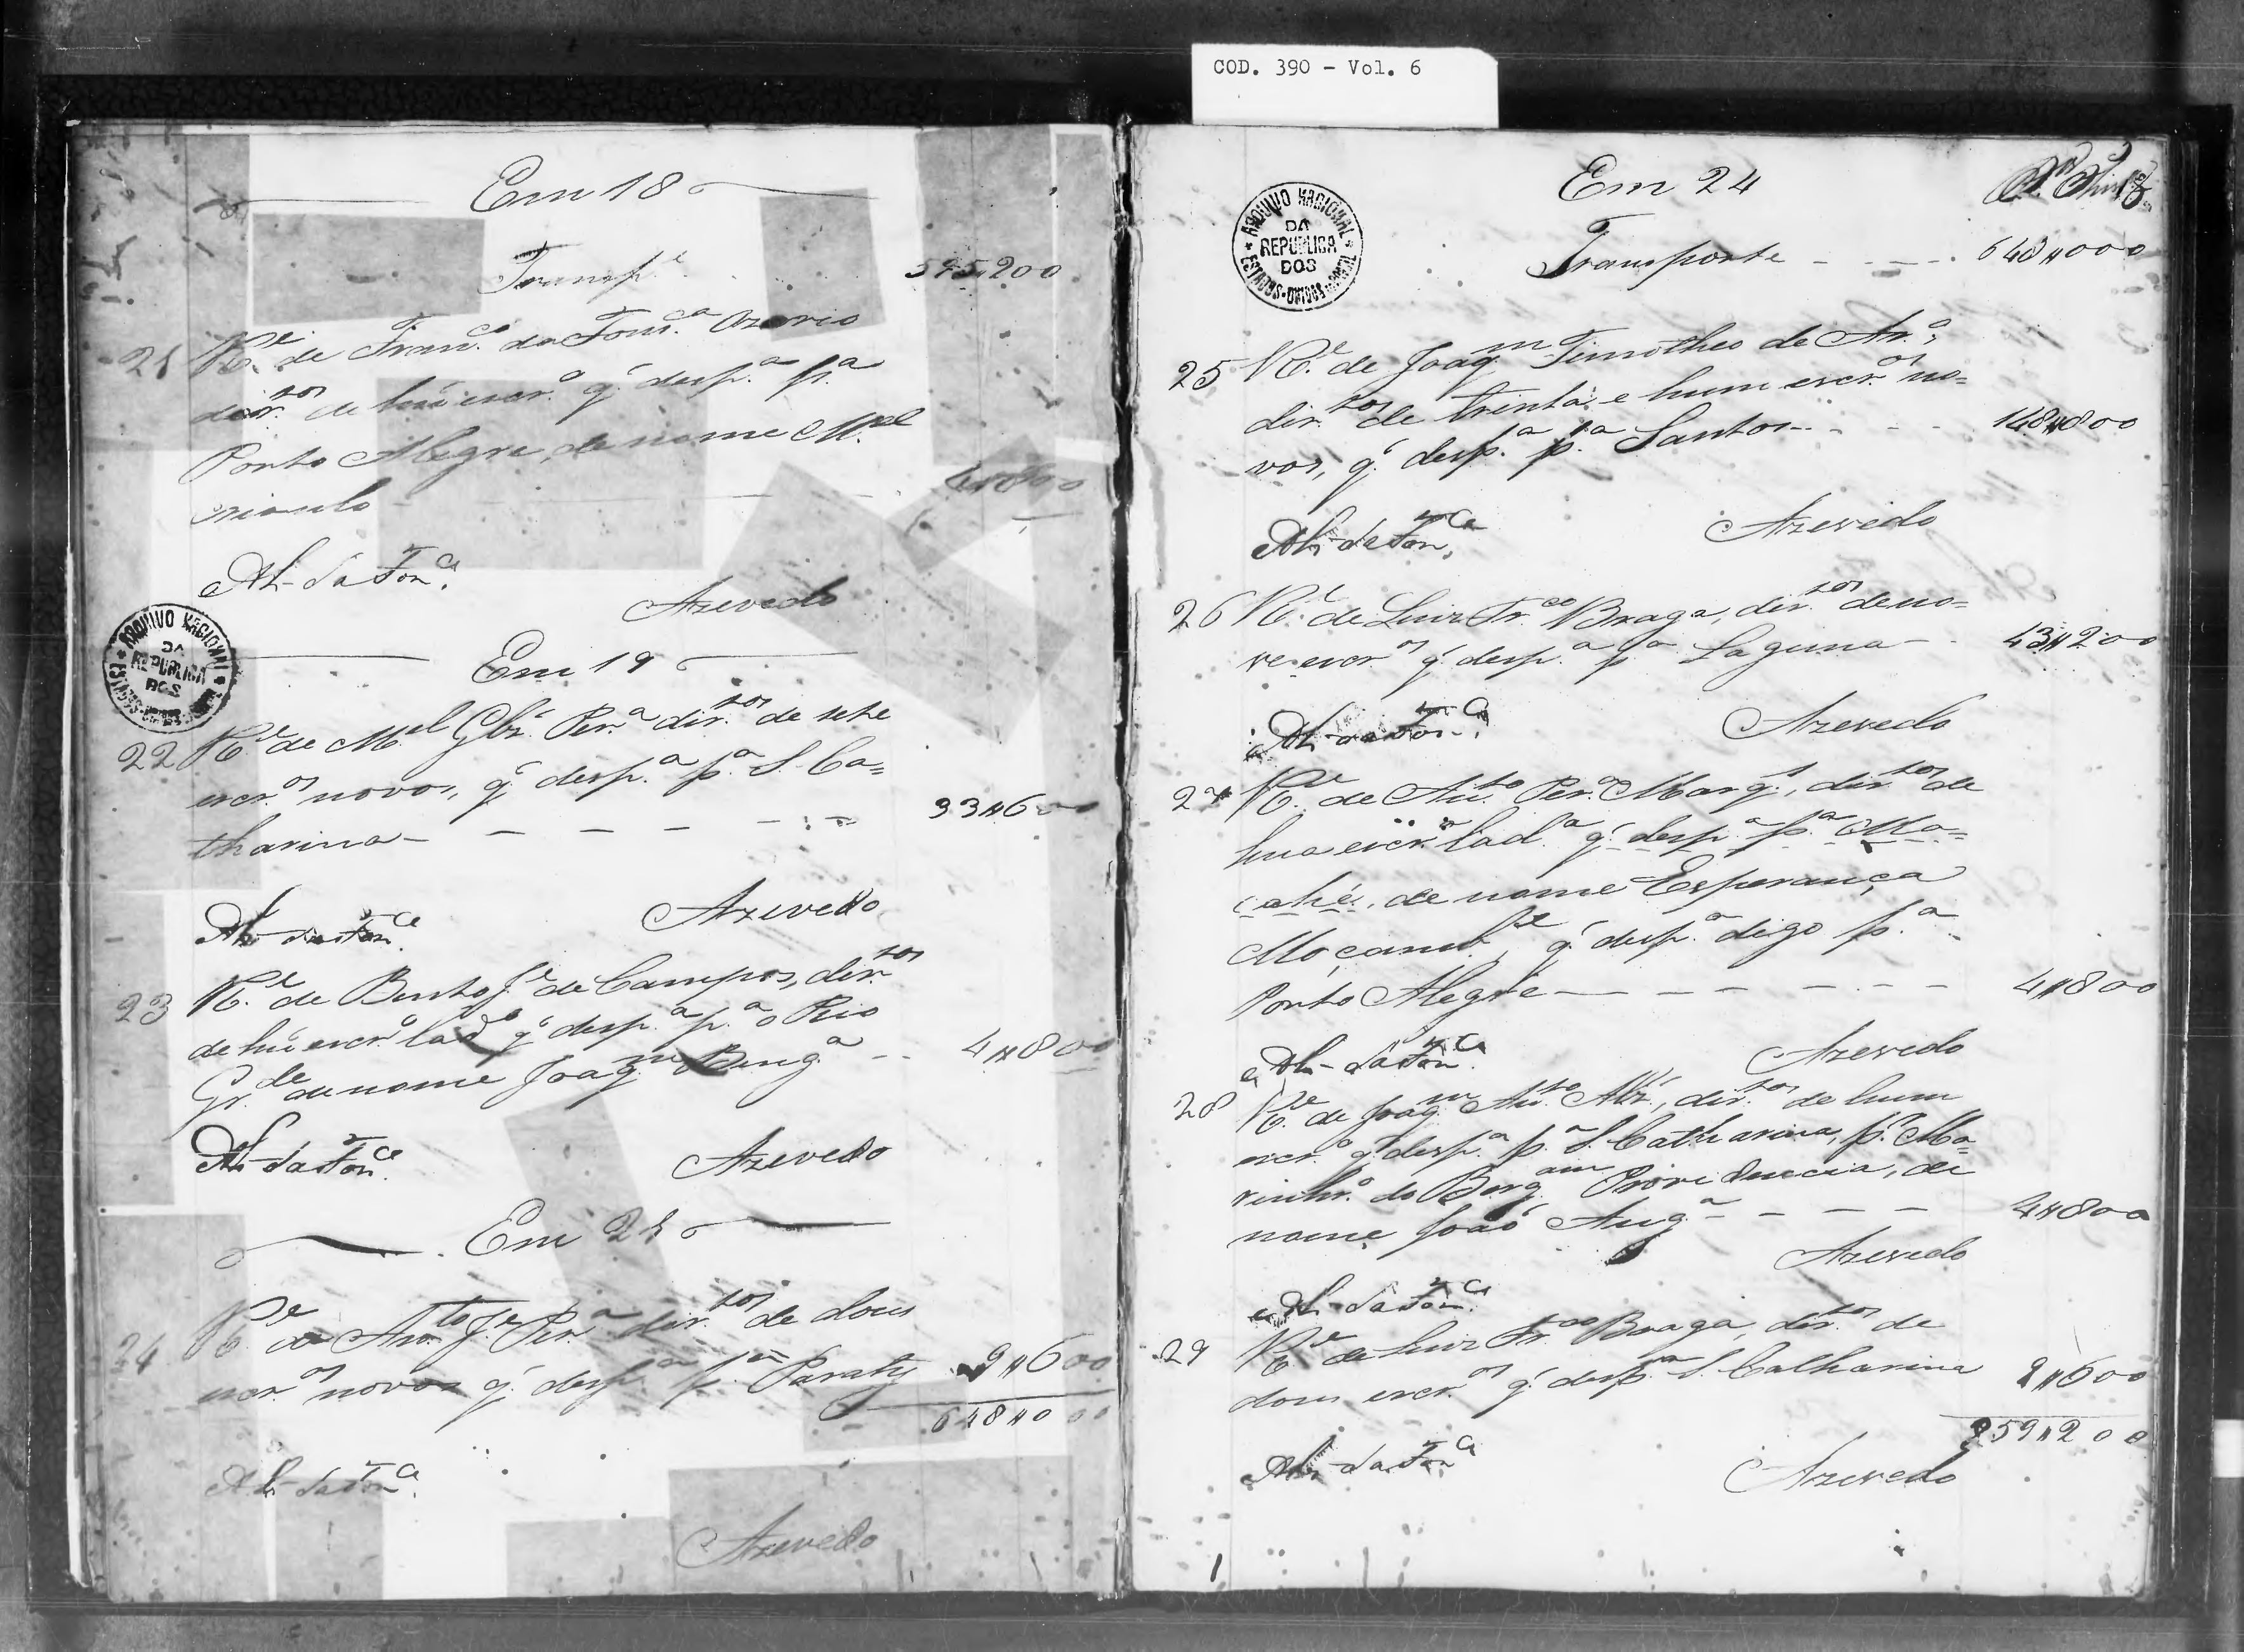 COD. 390 - Vol. 6
Em 18
Transp.e 595,200
21 R.e de Fran.co da Fons.ca Ozorio
dir.tos de hú escr.o q' desp.a p.a
Porto Alegre, de nome M.el
crioulo - 4#800
Al- da Fon.ca
Azevedo
ARQUIVO NACIONAL
DA
REPUBLICA
DOS
ESTADOS-UNIDOS
Em 19
22 R.e de M.el Glz' Per.a dir.tos de sete
escr.os novos, q' desp.a p.a S. Ca=
tharina - - - - - 33#600
Al- da Fon.ca Azevedo
23 R.e de Bento J.e de Campos, dir.tos
de hú escr.o lad.o q' desp.a p.a o Rio
Gr.de de nome Joaq.m Beng.a - - 4#800
Al- da Fon.ca Azevedo
Em 21
24 R.e de Ant.to J.e Per.a dir.tos de dous
escr.os novos q' desp.a p.a Paraty 9#600
648#000
Al- da Fon.ca
Azevedo
Em 24
ARQUIVO NACIONAL
DA
REPUBLICA
DOS
ESTADOS-UNIDOS
Transporte - - - - 648#000
25 R.e de Joaq.m Timotheo de Ar.o,
dir.tos de trinta e hum escr.os no=
vos, q' desp.a p.a Santos - - - - 148#800
Al- da Fon.ca Azevedo
26 R.e de Luiz Fr.co Braga, dir.tos de no=
ve escr.os q' desp.a p.a Laguna - 43#200
Al- da Fon.ca Azevedo
27 R.e de An.to Per.a Marq.s, dir.tos de
hua escr.a lad.a q' desp.a p.a Ma=
cahé, de nome Esperança
Moçamb.e q' desp.a digo p.a
Porto Alegre - - - - - - 4#800
Al- da Fon.ca Azevedo
28 R.e de Joaq.m An.to Alz', dir.tos de hum
escr.o q' desp.a p.a S. Catharina, p.r Ma=
rinhr.o do Berg.am Providencia, de
nome João Ang.a - - - - 4#800
Azevedo
Al- da Fon.ca
29 R.e de Luiz Fr.co Braga, dir.tos de
dous escr.os q' desp.a S. Catharina 9#600
859#200
Al- da Fon.ca
Azevedo